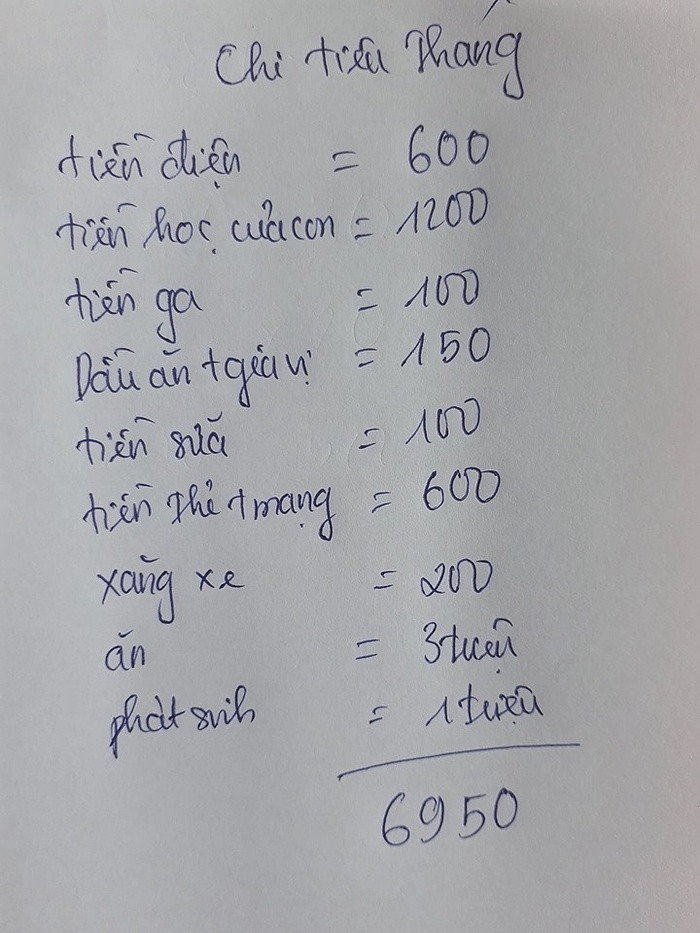 Chi tiêu Tháng
tiền điện = 600
tiền học của con = 1200
tiền ga = 100
Dầu ăn + gia vị = 150
tiền sữa = 100
tiền thẻ + mạng = 600
xăng xe = 200
ăn = 3 triệu
phát sinh = 1 triệu
6950